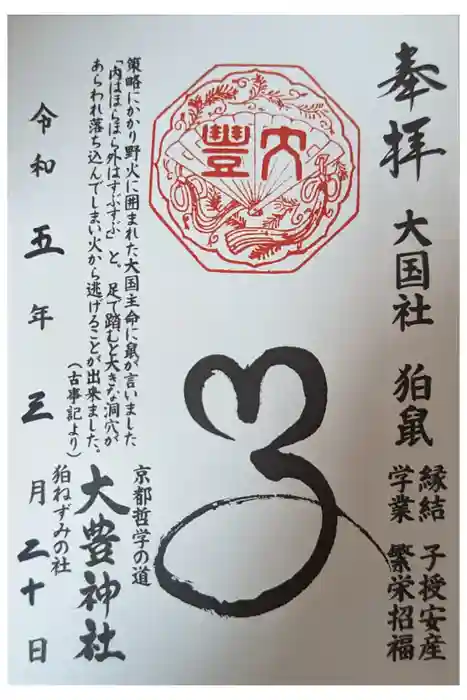 奉拝
大国社 狛鼠
縁結 子授安産
学業 繁栄招福
大豊
策略にかかり野火に囲まれた大国主命に鼠が言いました
「内はほらほら外はすぶすぶ」と。足で踏むと大きな洞穴が
あらわれ落ち込んでしまい火から逃げることが出来ました。
(古事記より)
京都哲学の道
大豊神社
狛ねずみの社
令和五年三月二十日